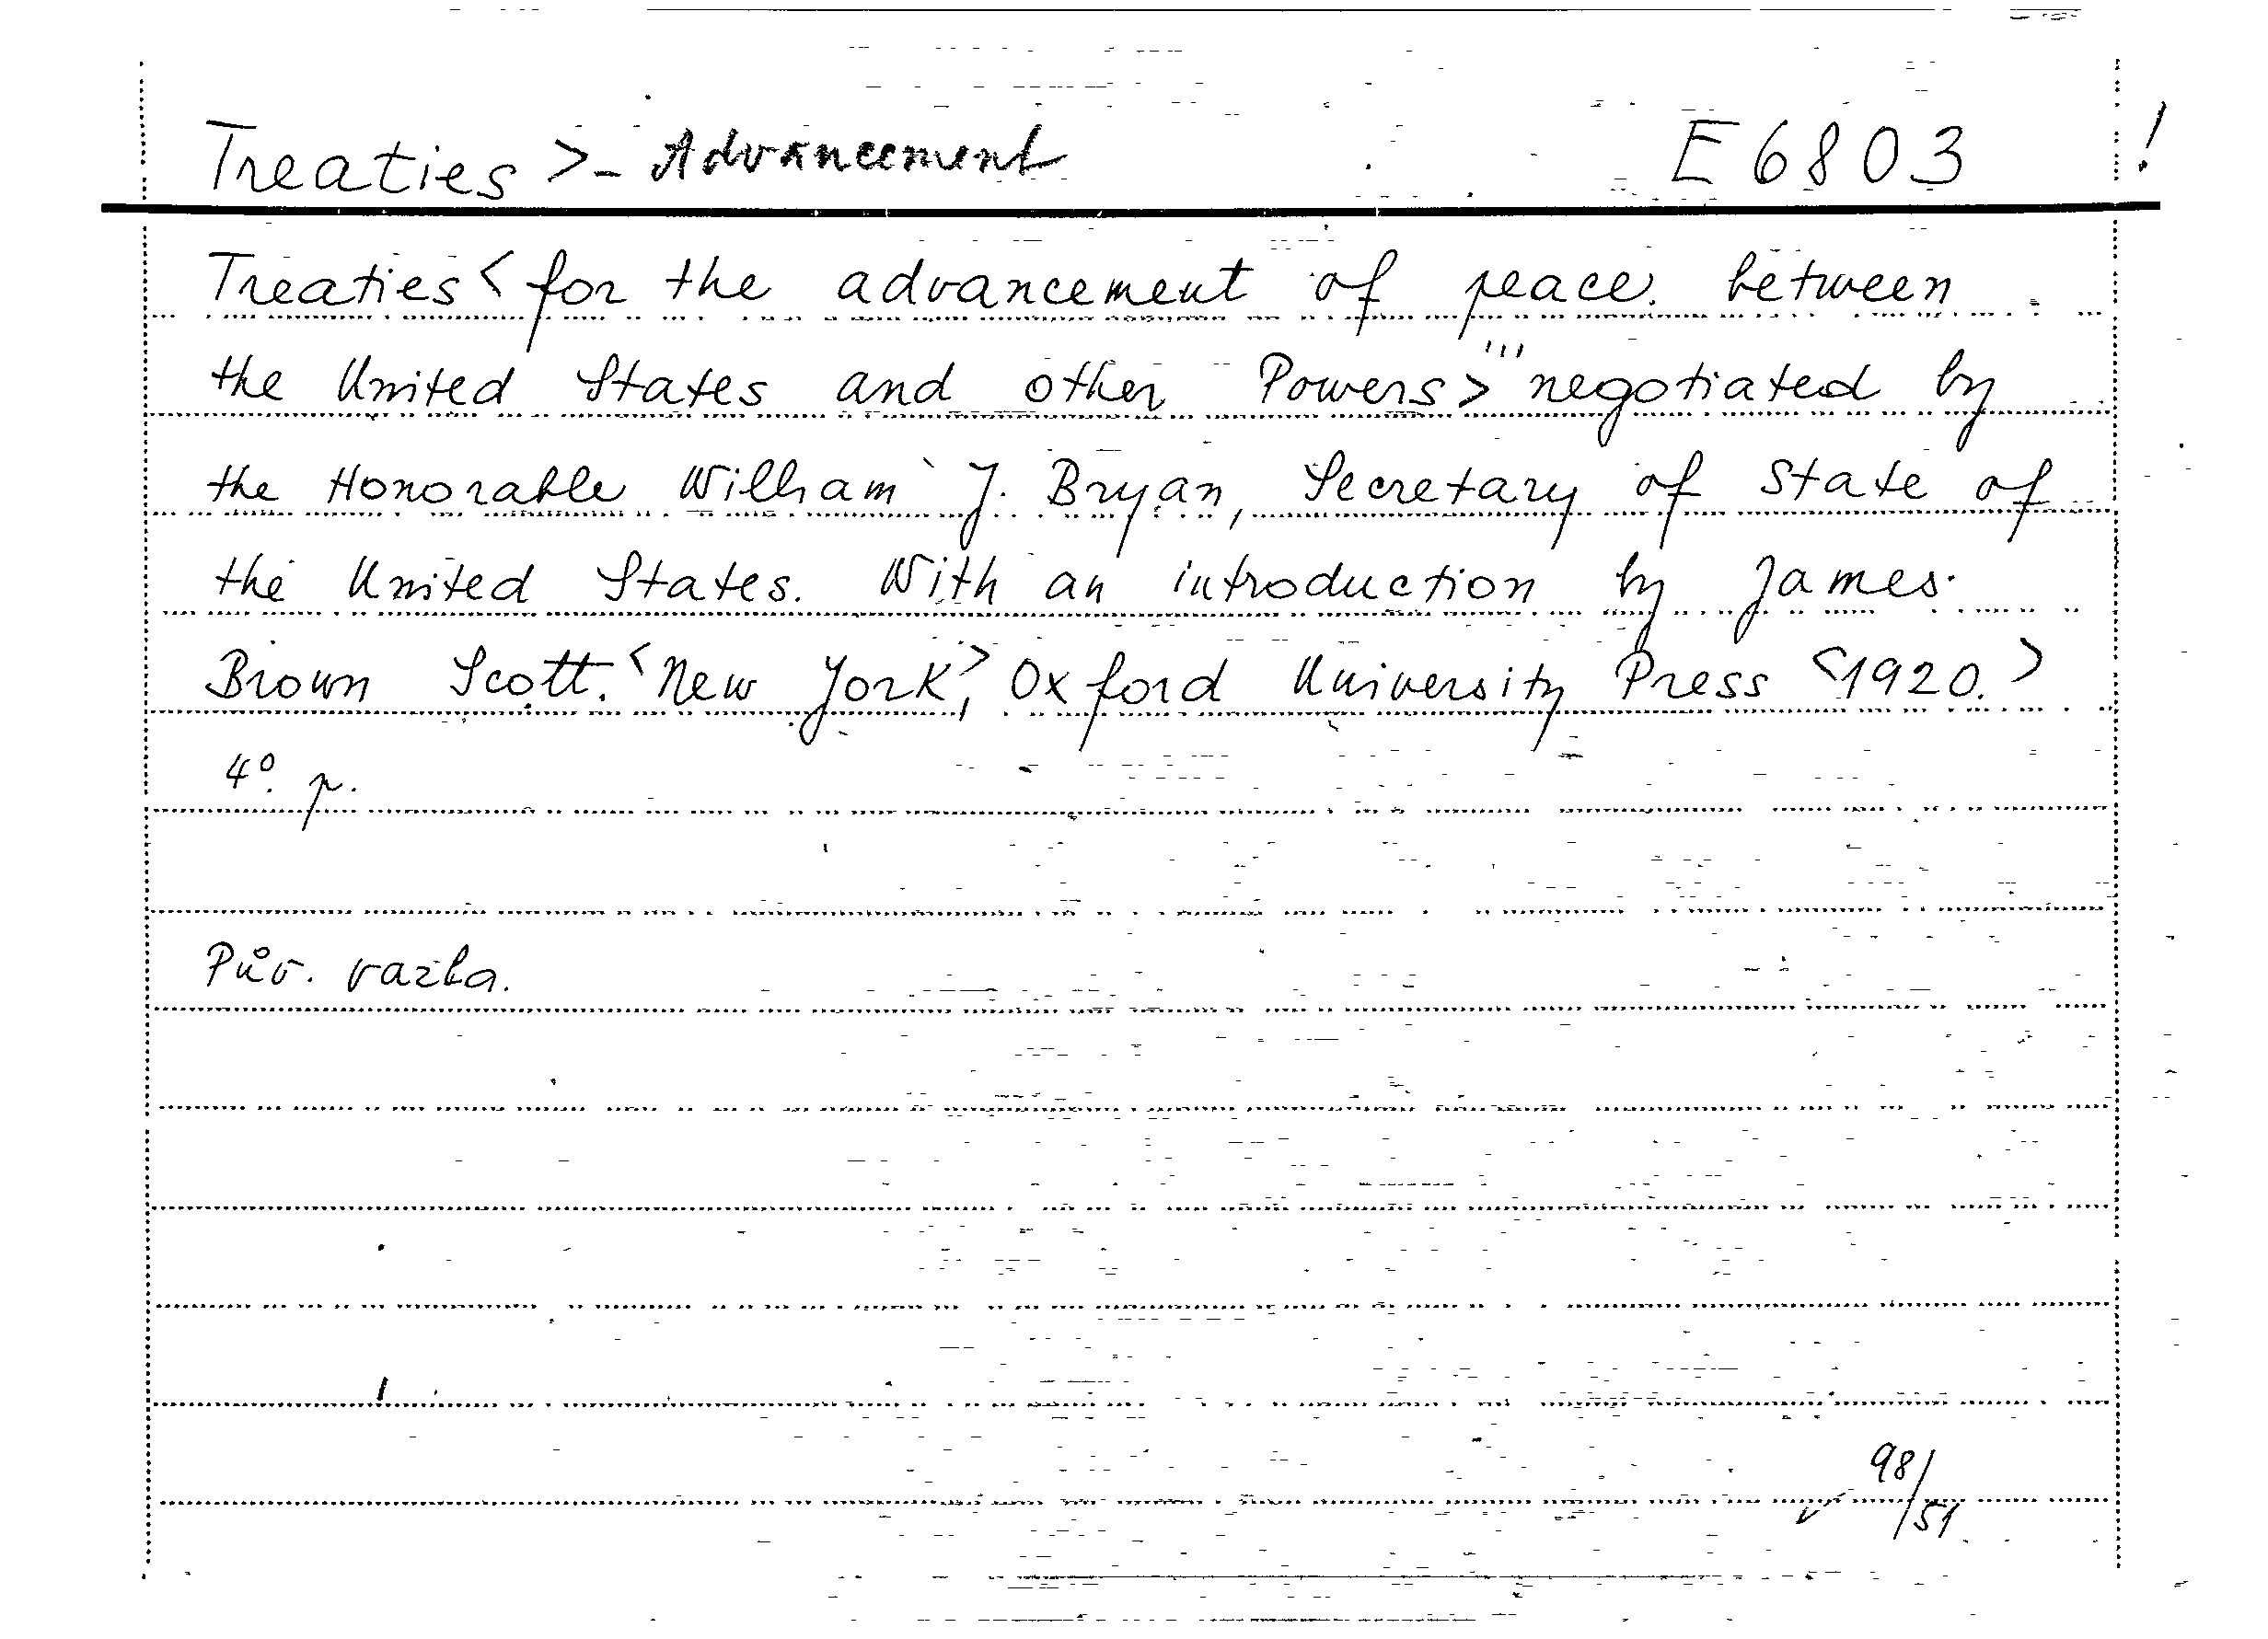 Treaties >- Advancement E6803 !
Treaties < for the advancement of peace between
the United States and other Powers > ''' negotiated by
the Honorable William J. Bryan, Secretary of State of
the United States. With an introduction by James
Brown Scott. <New York>, Oxford University Press <1920.>
4°. p.
Pův. vazba.
98/51